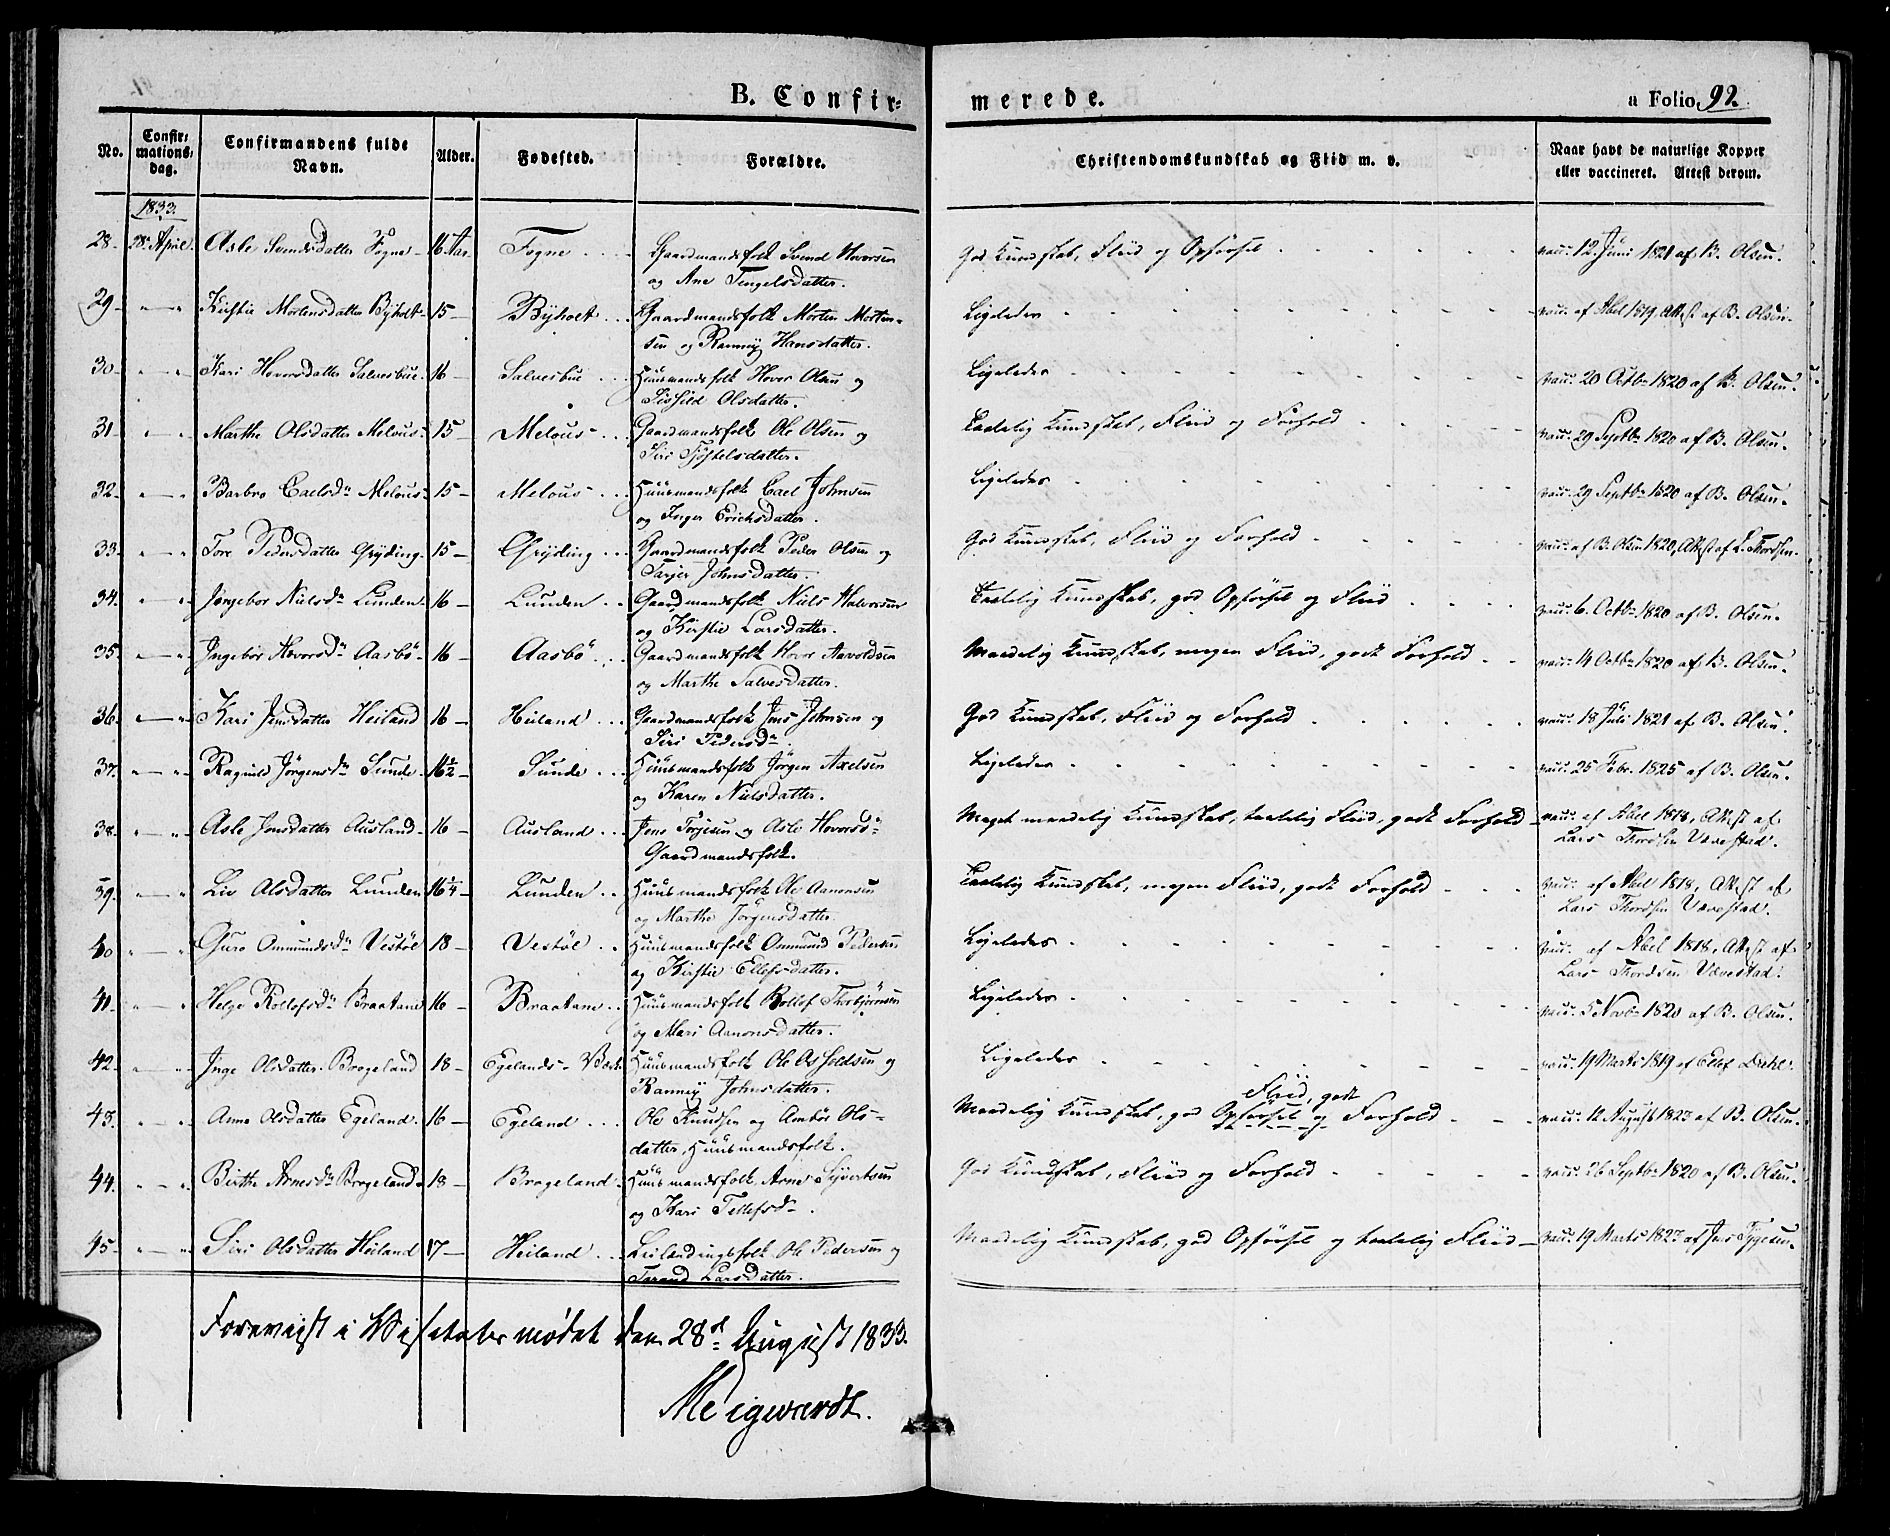 B. Confir=
merede.
a Folio 92.
No.
Confir=
mations=
dag.
Confirmandens fulde
Navn.
Alder.
Fødested.
Forældre.
Christendomskundskab og Flid m. v.
Naar havt de naturlige Kopper
eller vaccineret. Attest derom.
1833.
28. 28. April. Asle Svendsdatter Fogne 16 Aar. Fogne Gaardmandsfolk Svend Hoversen God Kundskab, Fliid og Opførsel vacc. 12 Juni 1821 af B. Olsen.
og Ane Tengelsdatter.
29 Kirstie Mortensdatter Byholt 15 Byholt Gaardmandsfolk Morten Morten- Ligeledes vacc. af Abel 1819, Attest af B. Olsen.
sen og Hansdatter.
30 Kari Hoversdatter Salvesbue 16 Salvesbue Huusmandsfolk Hover Olsen og Ligeledes vacc. 20 Octbr 1820 af B. Olsen.
Olsdatter.
31 Marthe Olsdatter Melous 15 Melous Gaardmandsfolk Ole Olsen og Taalelig Kundskab, Fliid og Forhold vacc. 29 Septbr 1820 af B. Olsen.
Siri
32 Barbro Carlsdr Melous 15 Melous Huusmandsfolk Carl Johnsen Ligeledes vacc. 29 Septbr 1820 af B. Olsen.
og Inger Erichsdatter.
33 Tore Pedersdatter Gryding 15 Gryding Gaardmandsfolk Peder Olsen og God Kundskab, Fliid og Forhold vacc. af B. Olsen 1820, Attest af L. Thordsen.
Tarjer Johnsdatter.
34. Jngebor Nielsdr Lunden 16 Lunden Gaardmandsfolk Niels Halvorsen Taalelig Kundskab, god Opførsel og Fliid vacc. 6. Octbr 1820 af B. Olsen.
og Kirstie Larsdatter.
35. Jngebor Hovorsdr Aasbö 16 Aasbö Gaardmandsfolk Hovor Aavoldsen Maadelig Kundskab, megen Fliid, godt Forhold vacc. 14 Octbr 1820 af B. Olsen.
og Marthe Salvesdatter.
36. Kari Jensdatter Heiland 16 Heiland Gaardmandsfolk Jens Johnsen og God Kundskab, Fliid og Forhold vacc. 18 Juli 1821 af B. Olsen.
Siri Pedersdr.
37. Ragnild Jörgensdr Sunde 16½ Sunde Huusmandsfolk Jörgen Axelsen Ligeledes vacc. 25 Febr. 1825 af B. Olsen.
og Karen Nielsdatter.
38. Asle Jensdatter Ausland 16 Ausland Jens Terjesen og Asle Hovorsdr Meget maadelig Kundskab, taalelig Fliid, godt Forhold vacc. af Abel 1818, Attest af
Gaardmandsfolk. Lars Thordsen Vævestad.
39. Liv Olsdatter Lunden 16¼ Lunden Huusmandsfolk Ole Aanonsen Taalelig Kundskab, megen Fliid, godt Forhold vacc. af Abel 1818, Attest af
og Marthe Jörgensdatter. Lars Thordsen Vævestad.
40 Guro Omundsdr Vestöl 18 Vestöl Huusmandsfolk Ommund Pedersen Ligeledes vacc. af Abel 1818, Attest af
og Kirstie Ellefsdatter. Lars Thordsen Vævestad.
41. Helge Rollefsdr Braatane 16 Braatane Huusmandsfolk Rollef Thorbjörnsen Ligeledes vacc. 5 Novbr 1820 af B. Olsen.
og Mari Aanonsdatter.
42. Jnge Olsdatter Brogeland 18 Egelands-Værk Huusmandsfolk Ole Osfoldsen og Ligeledes vacc. 19 Marts 1819 af Ellef Dahl.
Johnsdatter.
43. Anne Olsdatter Egeland 16 Egeland Ole Knudsen og Anbör Ols- Maadelig Kundskab, god Opførsel og Fliid, godt Forhold vacc. 12 August 1823 af B. Olsen.
datter, Huusmandsfolk.
44. Birthe Arnesdr Brogeland 18 Brogeland Huusmandsfolk Arne Syvertsen God Kundskab, Fliid og Forhold vacc. 26 Septbr 1820 af B. Olsen.
og Kari Tellefsdr.
45. Siri Olsdatter Heiland 17 Heiland Leilendingsfolk Ole Pedersen og Maadelig Kundskab, god Opførsel og taalelig Fliid vacc. 19 Marts 1827 af Jens
Torand Larsdatter.
Foreviist i Visitatsmødet den 28de August 1833.